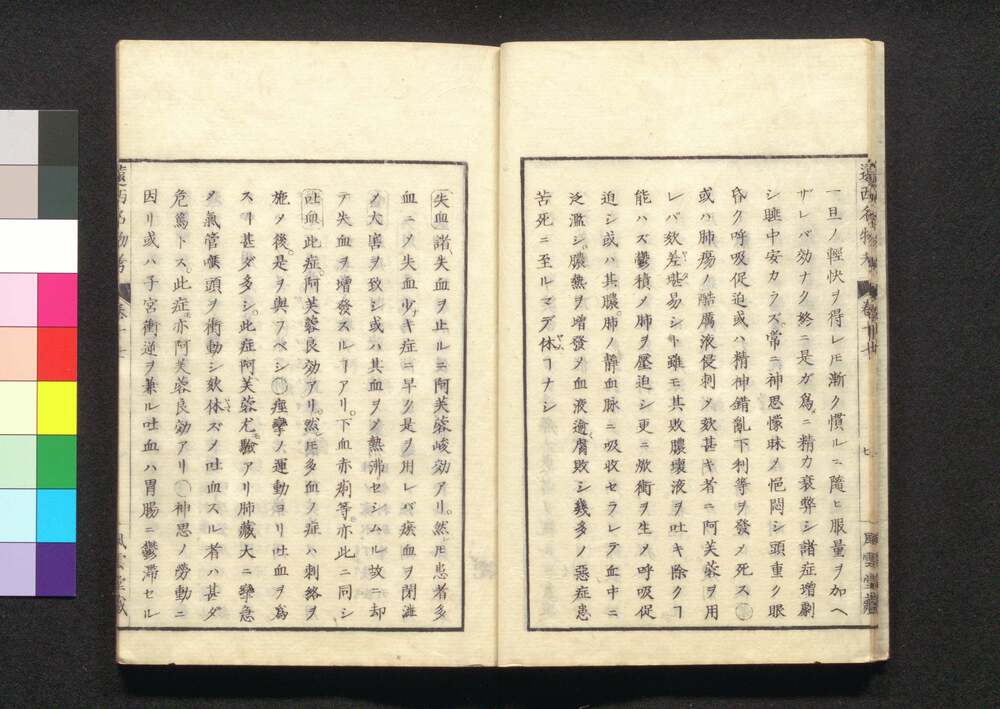 一旦ノ輕快ヲ得レ𪜈漸ク慣ルニ隨ヒ服量ヲ加ヘ
ザレバ効ナク終ニ是ガ爲ニ精力衰弊シ諸症増劇
シ睡中安カラズ常ニ神思懞昧ノ悒悶シ頭重ク眼
昏ク呼吸促迫或ハ精神錯亂下利等ヲ發メ死ス
或ハ肺瘍ノ酷厲液侵刺メ欬甚キ者ニ阿芙蓉ヲ用
レバ欬差易シト雖モ其敗膿壞液ヲ吐キ除クヿ
能ハズ鬱積メ肺ヲ壓迫シ更ニ焮衝ヲ生メ呼吸促
迫シ或ハ其膿肺ノ静血脉ニ吸收セラレテ血中ニ
泛濫シ膿熱ヲ増發メ血液逾腐敗シ幾多ノ惡症患
苦死ニ至ルマデ休ヿナシ
失血 諸失血ヲ止ルニ阿芙蓉峻効アリ然𪜈患者多
血ニメ失血少キ症ニ早ク是ヲ用レバ瘀血ヲ閉澁
メ大害ヲ致シ或ハ其血ヲメ熱沸セシムル故ニ却
テ失血ヲ増發スルヿアリ下血赤痢等亦此ニ同シ
吐血 此症阿芙蓉良効アリ然𪜈多血ノ症ハ刺絡ヲ
施メ後是ヲ與フベシ 痙攣ノ運動ヨリ吐血ヲ爲
スヿ甚ダ多シ此症阿芙蓉尤驗アリ肺藏大ニ攣急
メ氣管喉頭ヲ衝動シ欬休ズメ吐血スル者ハ甚ダ
危篤トス此症亦阿芙蓉良効アリ 神思ノ勞動ニ
因リ或ハ子宮衝逆ヲ兼ル吐血ハ胃腸ニ鬱滯セル